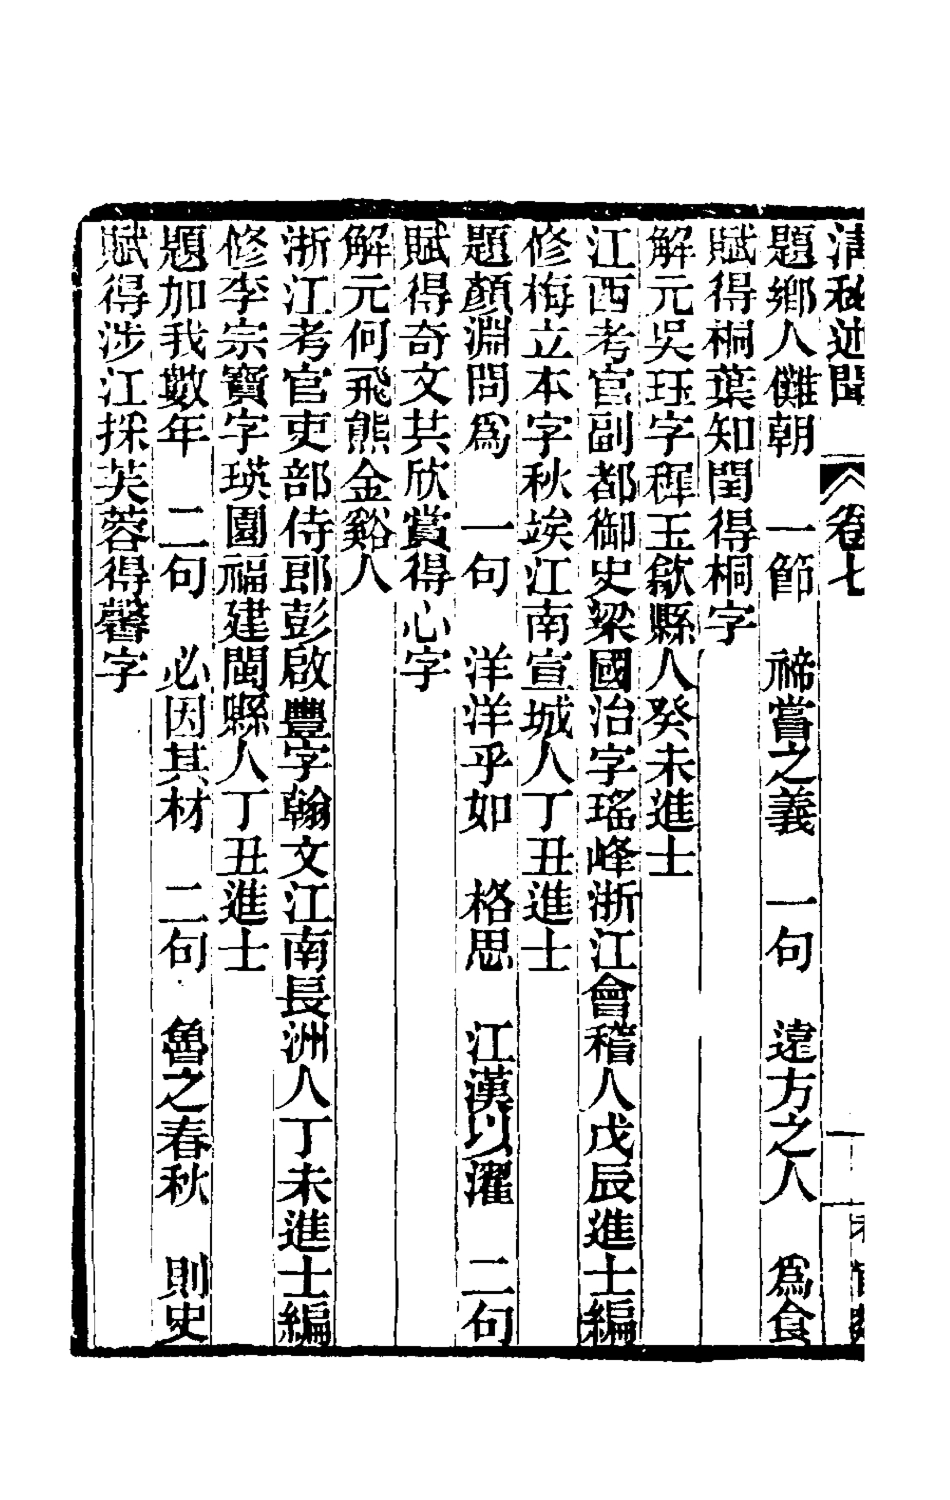 清秘述聞　卷七
題鄉人儺朝　一節　禘嘗之義　一句　遠方之人　爲食
賦得桐葉知閏得桐字
解元吳珏字穉玉歙縣人癸未進士
江西考官副都御史梁國治字瑤峰浙江會稽人戊辰進士編
修梅立本字秋竢江南宣城人丁丑進士
題顏淵問爲　一句　洋洋乎如　格思　江漢以濯　二句
賦得奇文共欣賞得心字
解元何飛熊金谿人
浙江考官吏部侍郎彭啟豐字翰文江南長洲人丁未進士編
修李宗寶字瑛園福建閩縣人丁丑進士
題加我數年　二句　必因其材　二句　魯之春秋　則史
賦得涉江採芙蓉得馨字